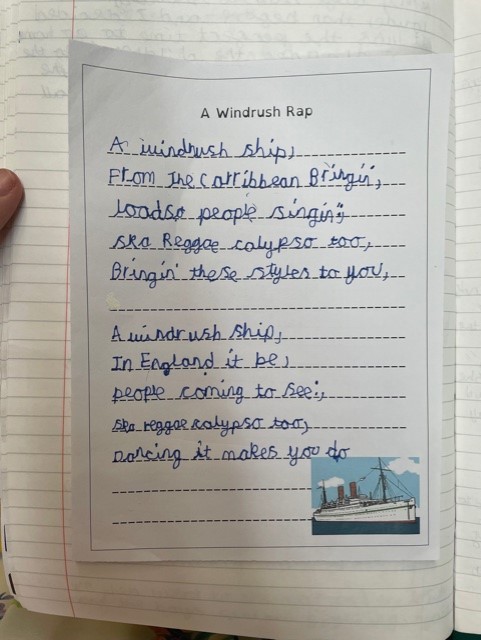 A Windrush Rap
A windrush ship,
From The Carribbean Bringin',
loadsa people singin';
ska Reggae calypso too,
Bringin' these styles to you,
A windrush ship,
In England it be,
people coming to see,
ska reggae calypso too,
Dancing it makes you do